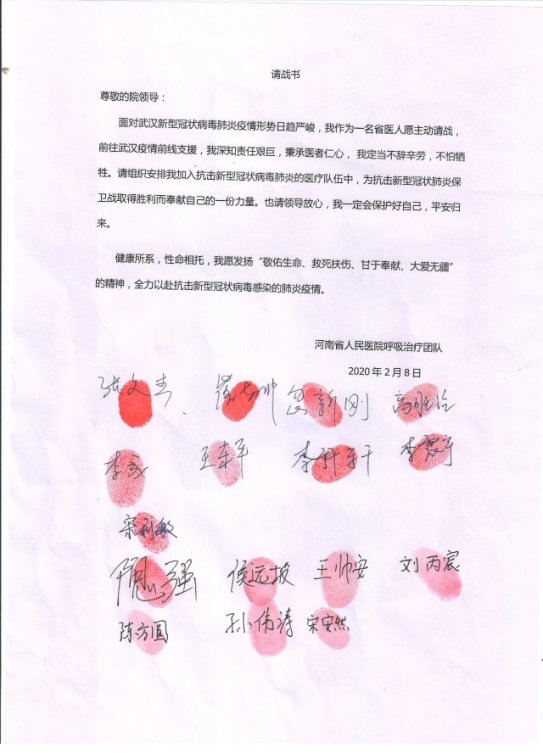 请战书
尊敬的院领导：
面对武汉新型冠状病毒肺炎疫情形势日趋严峻，我作为一名省医人愿主动请战，
前往武汉疫情前线支援，我深知责任艰巨，秉承医者仁心，我定当不辞辛劳，不怕牺
牲。请组织安排我加入抗击新型冠状病毒肺炎的医疗队伍中，为抗击新型冠状肺炎保
卫战取得胜利而奉献自己的一份力量。也请领导放心，我一定会保护好自己，平安归
来。
健康所系，性命相托，我愿发扬“敬佑生命、救死扶伤、甘于奉献、大爱无疆”
的精神，全力以赴抗击新型冠状病毒感染的肺炎疫情。
河南省人民医院呼吸治疗团队
2020 年 2 月 8 日
张文杰
宋利敏
王帅安 刘丙宸
陈方圆 孙伟涛 宋安然